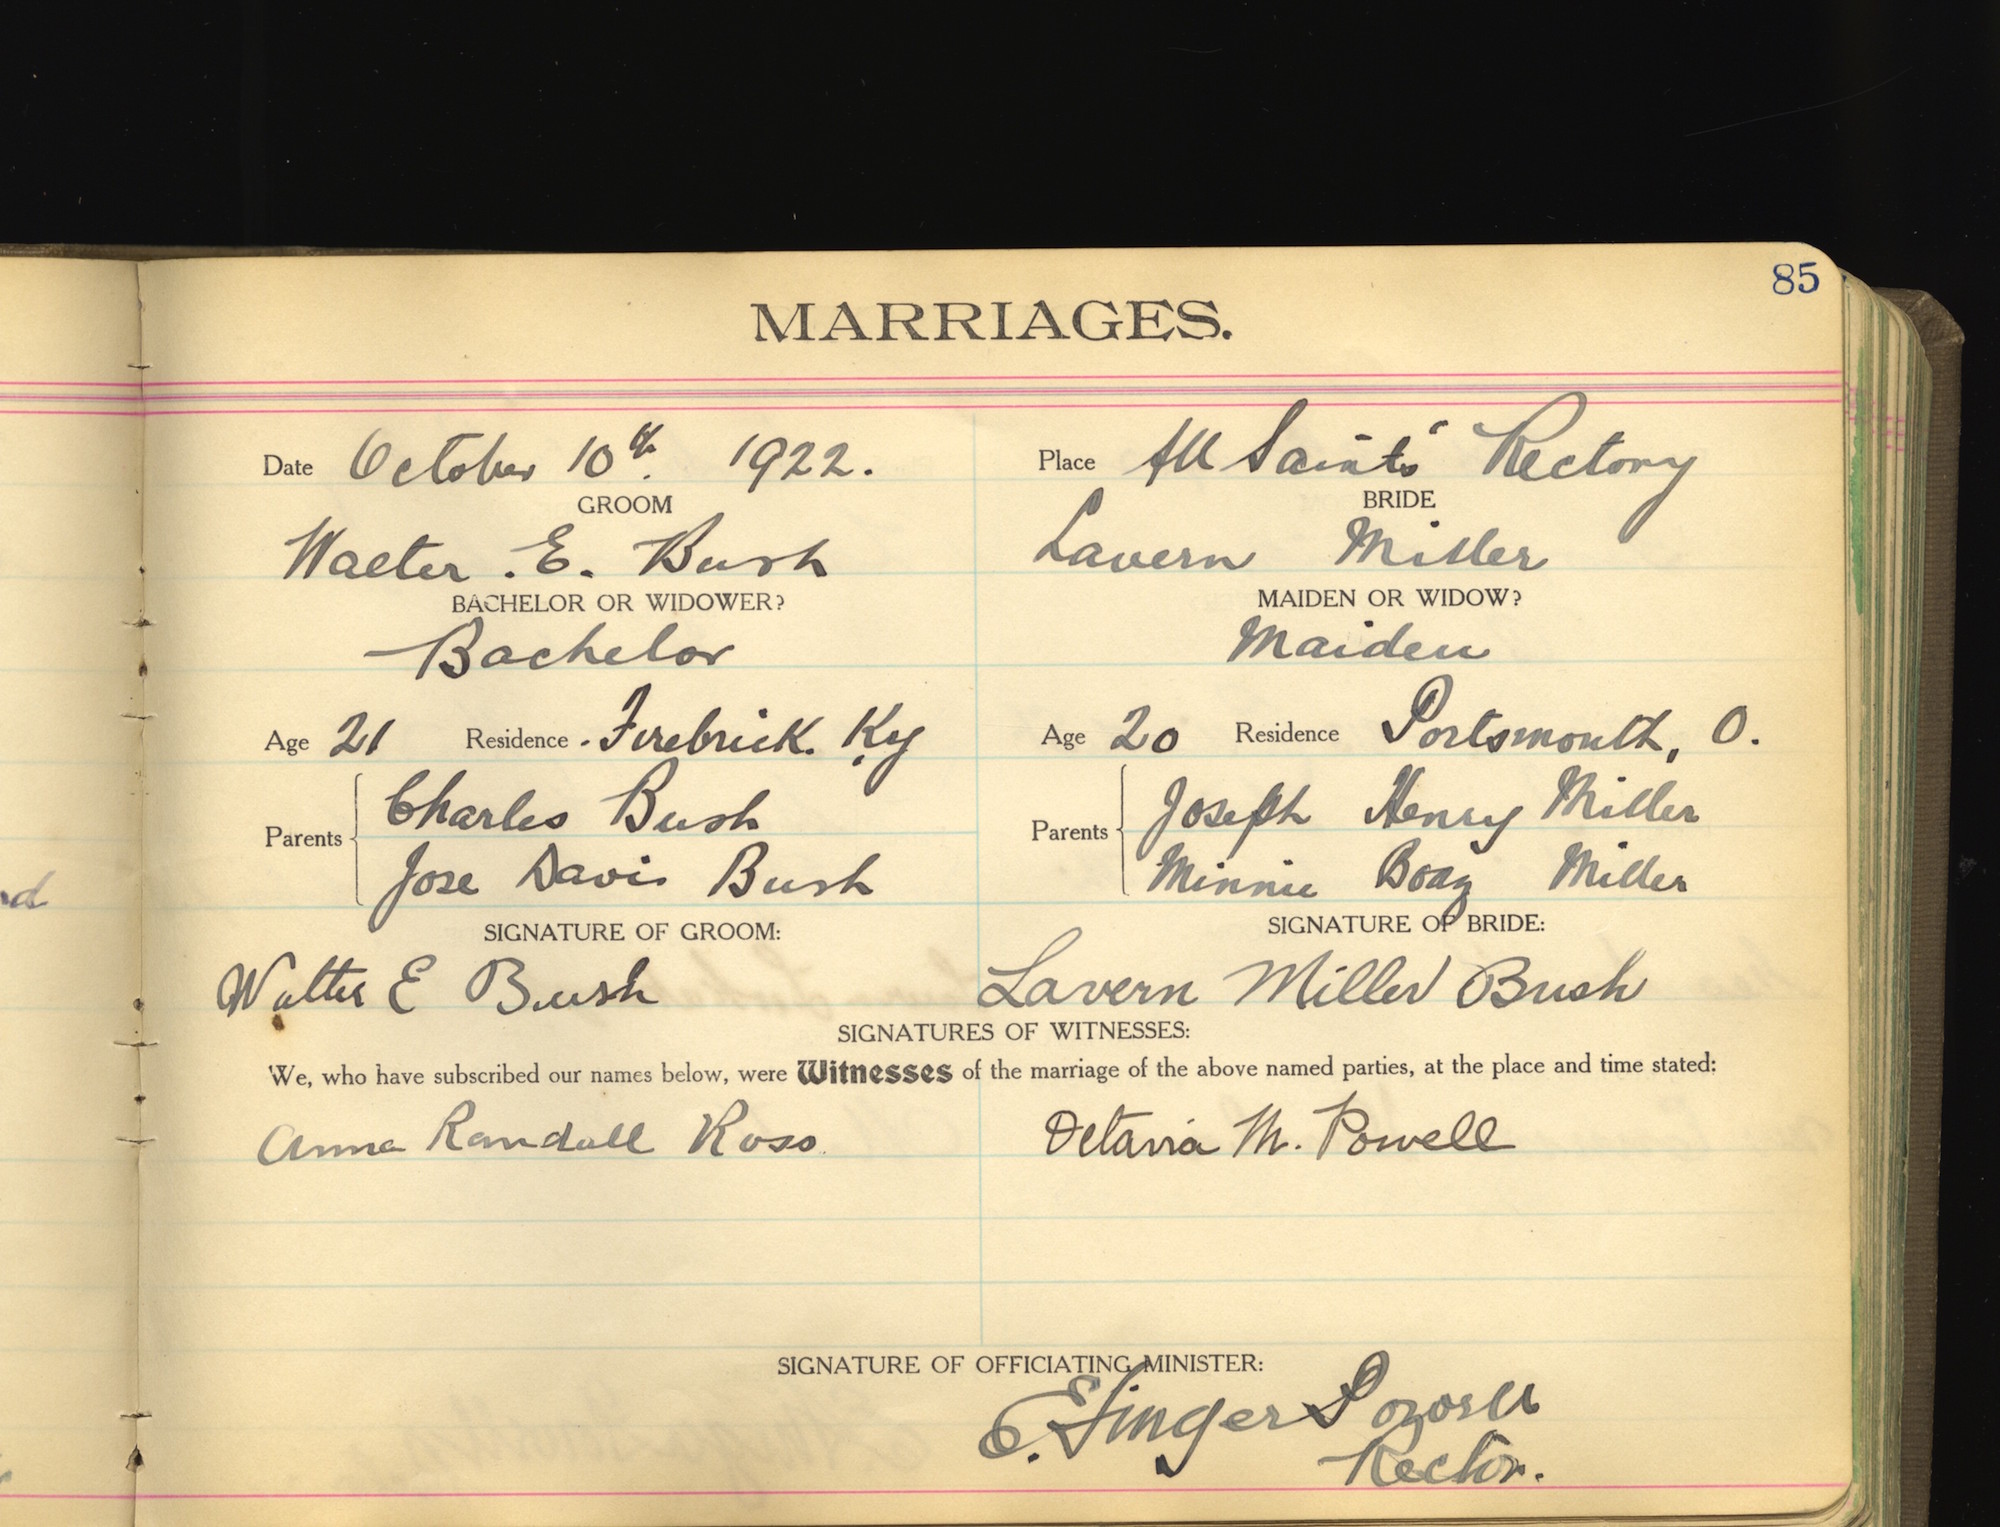 85
MARRIAGES.
Date October 10th. 1922. Place All Saints' Rectory
GROOM BRIDE
Walter . E. Bush Lavern Miller
BACHELOR OR WIDOWER? MAIDEN OR WIDOW?
Bachelor Maiden
Age 21 Residence . Firebrick. Ky Age 20 Residence Portsmouth, O.
Parents Charles Bush Parents Joseph Henry Miller
Jose Davis Bush Minnie Boaz Miller
SIGNATURE OF GROOM: SIGNATURE OF BRIDE:
Walter E Bush Lavern Miller Bush
SIGNATURES OF WITNESSES:
We, who have subscribed our names below, were Witnesses of the marriage of the above named parties, at the place and time stated:
Anna Randall Ross. Octavia M. Powell
SIGNATURE OF OFFICIATING MINISTER:
E. Ainger Powell
Rector.